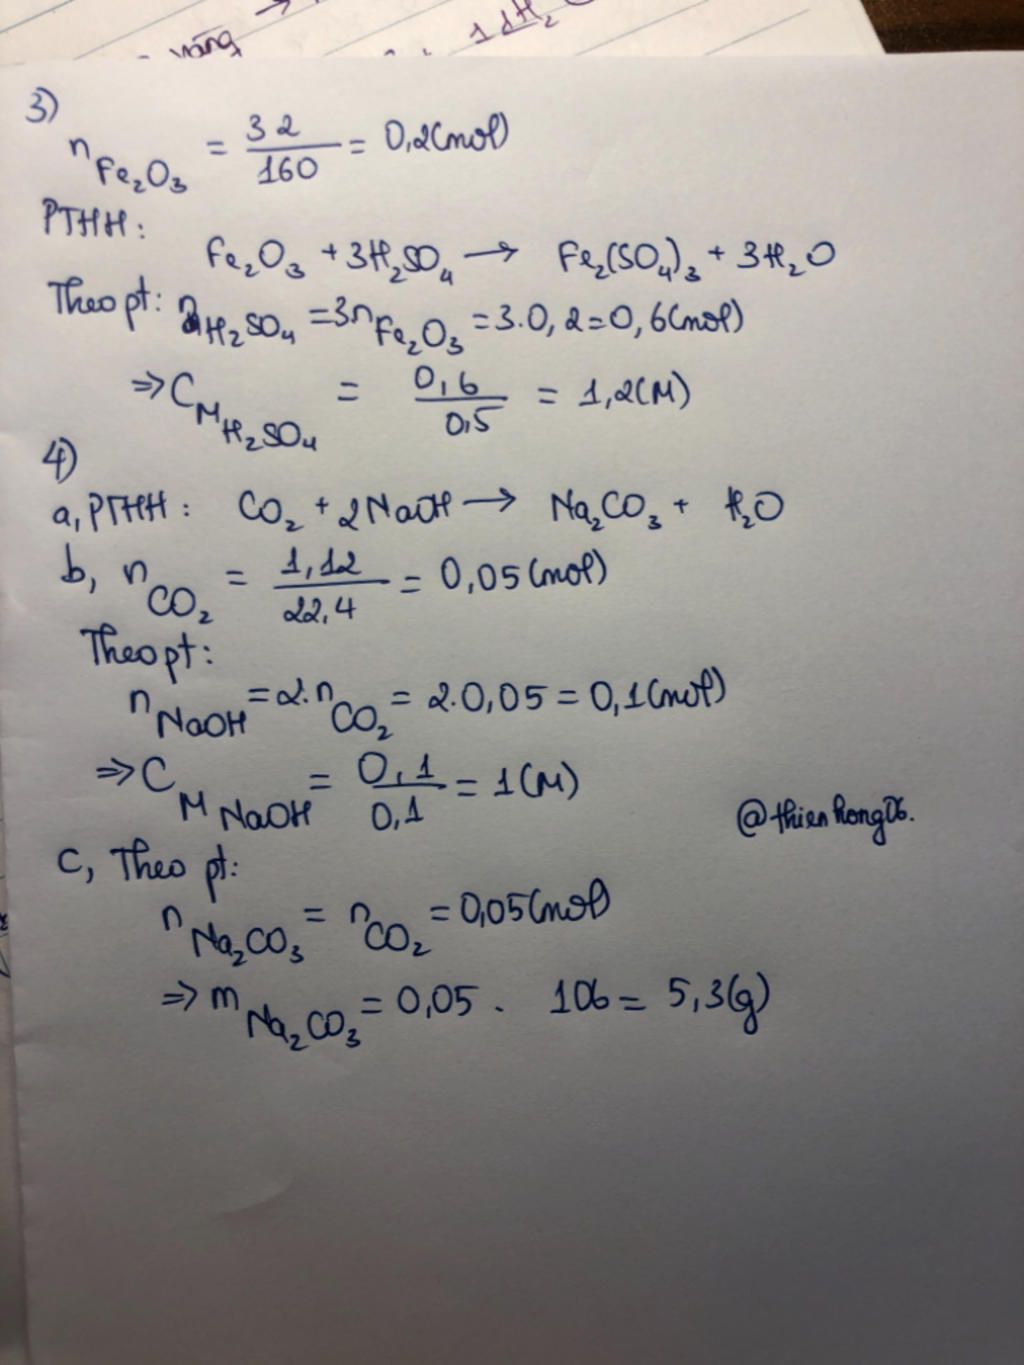 váng
1 dH₂
3)
n Fe₂O₃ = 32/160 = 0,2(mol)
PTHH:
Fe₂O₃ + 3H₂SO₄ → Fe₂(SO₄)₃ + 3H₂O
Theo pt: n H₂SO₄ = 3n Fe₂O₃ = 3.0,2 = 0,6(mol)
⇒ C M H₂SO₄ = 0,6/0,5 = 1,2(M)
4)
a, PTHH: CO₂ + 2NaOH → Na₂CO₃ + H₂O
b, n CO₂ = 1,12/22,4 = 0,05(mol)
Theo pt:
n NaOH = 2.n CO₂ = 2.0,05 = 0,1(mol)
⇒ C M NaOH = 0,1/0,1 = 1(M)
@thienhong06.
c, Theo pt:
n Na₂CO₃ = n CO₂ = 0,05(mol)
⇒ m Na₂CO₃ = 0,05 . 106 = 5,3(g)